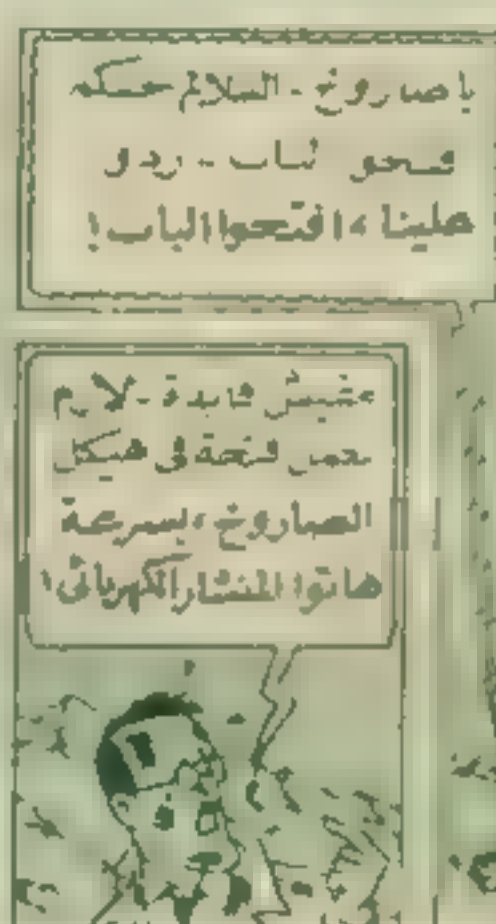 يا صاروخ - السلام عليكم
محمد ثابت - ردوا
علينا، افتحوا الباب!
مفيش فايدة - لازم
نعمل فتحة فى هيكل
الصاروخ، بسرعة
هاتوا المنشار الكهربائى!